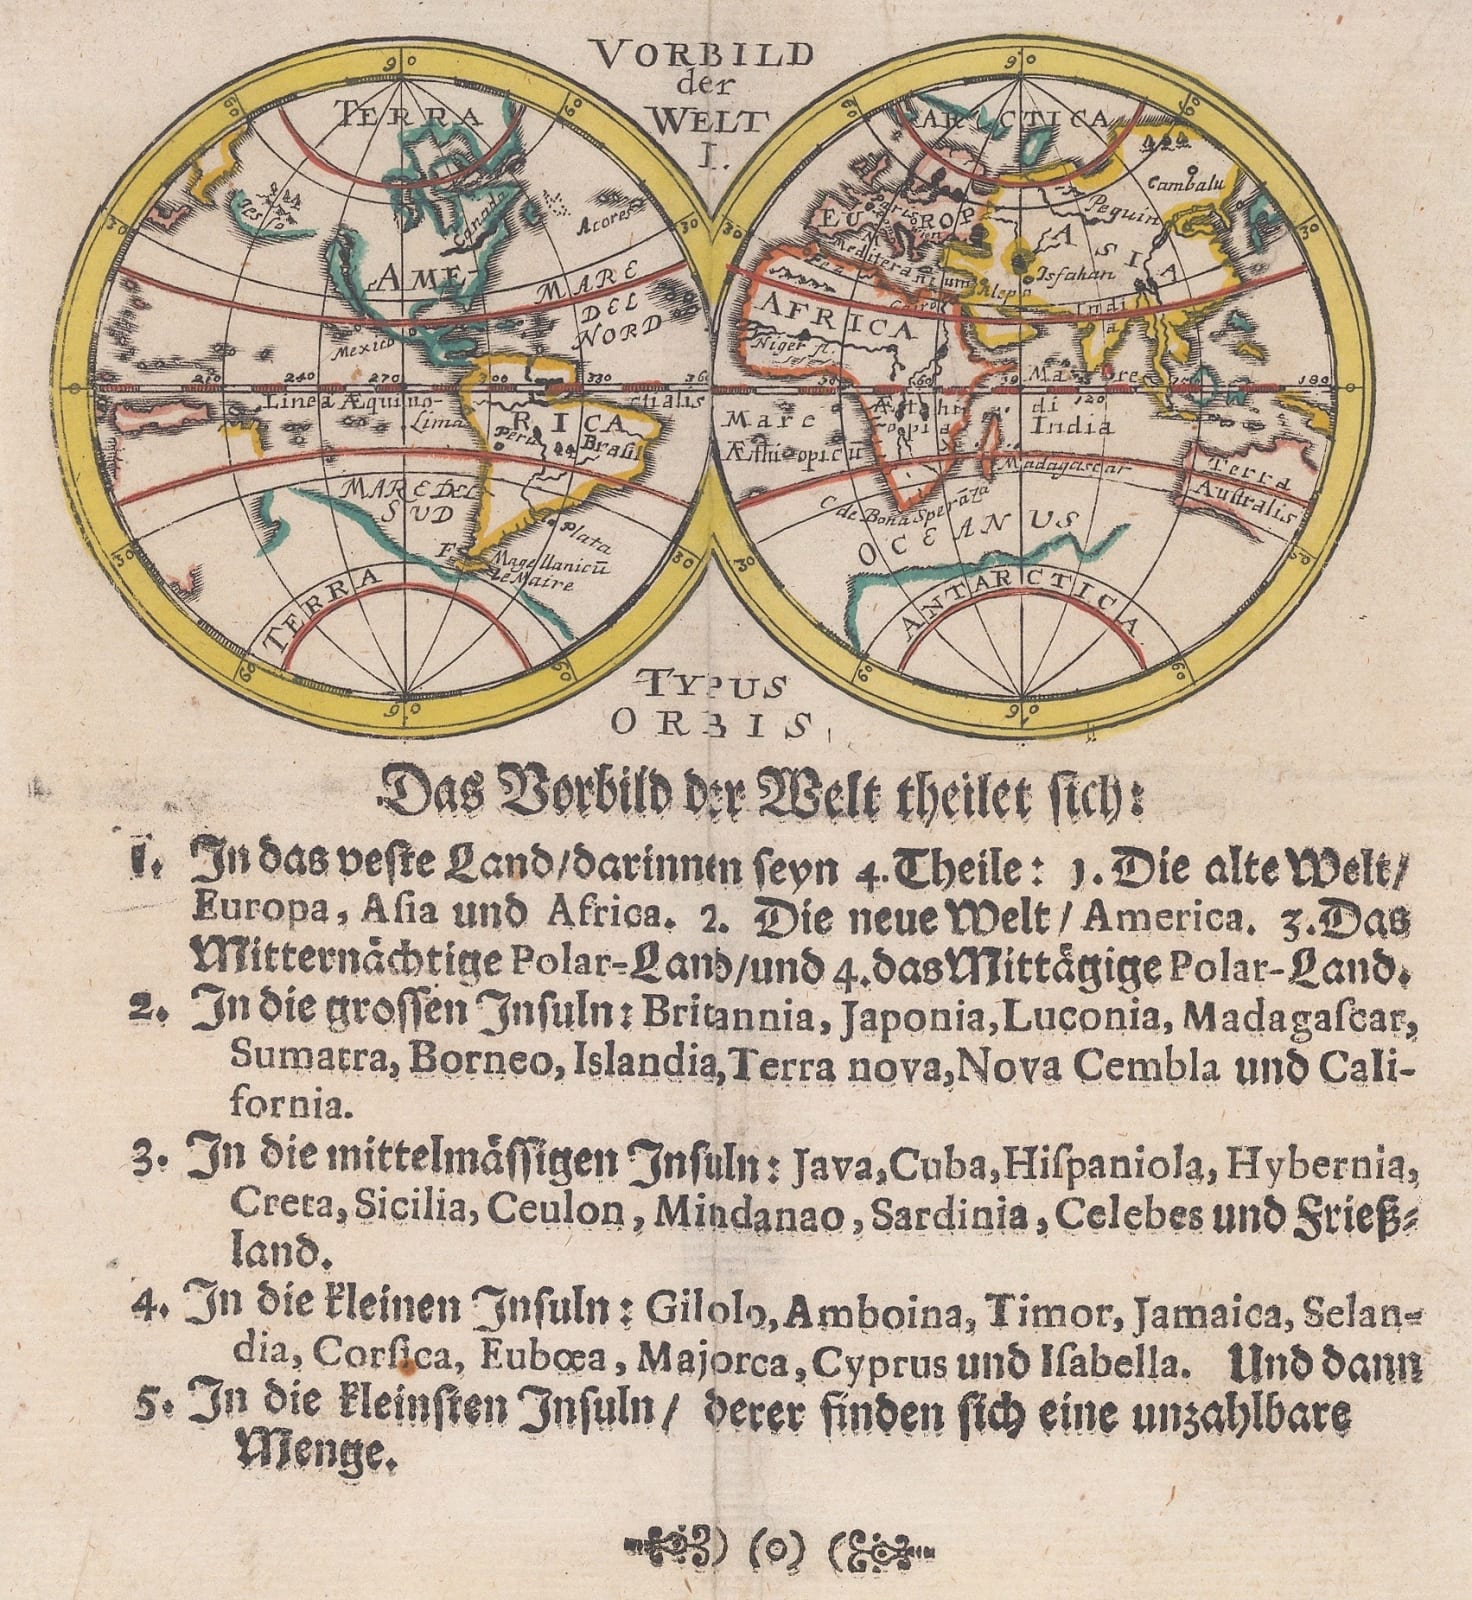 VORBILD
der
WELT
I.
90
90
60
60
60
60
30
30
30
30
TERRA
ARCTICA
Canada
Acores
AME-
MARE
DEL
NORD
Mexico
210
240
270
300
330
360
Linea Æquino-
ctialis
Lima
RICA
Peru
Brasil
MARE DEL
SUD
Plata
Magellanicū
le Maire
TERRA
90
EUROP
Paris
Wien
Mediteraneum
Cambalu
Pequin
ASIA
Isfahan
Alepo
India
Fez
AFRICA
Cairo
Niger fl.
30
60
90
120
180
Mare
di
India
Mare
Æthiopicū
Æthi
opia
Madagascar
Terra
Australis
C de Bona Speranza
OCEANUS
ANTARCTICA
90
TYPUS
ORBIS
Das Vorbild der Welt theilet sich:
1. In das veste Land/darinnen seyn 4. Theile: 1. Die alte Welt/
Europa, Asia und Africa. 2. Die neue Welt/ America. 3. Das
Mitternächtige Polar-Land/und 4. das Mittägige Polar-Land.
2. In die grossen Insuln: Britannia, Japonia, Luconia, Madagascar,
Sumatra, Borneo, Islandia, Terra nova, Nova Cembla und Cali-
fornia.
3. In die mittelmässigen Insuln: Java, Cuba, Hispaniola, Hybernia,
Creta, Sicilia, Ceulon, Mindanao, Sardinia, Celebes und Frieß-
land.
4. In die kleinen Insuln: Gilolo, Amboina, Timor, Jamaica, Selan-
dia, Corsica, Eubœa, Majorca, Cyprus und Isabella. Und dann
5. In die kleinsten Insuln/ derer finden sich eine unzahlbare
Menge.